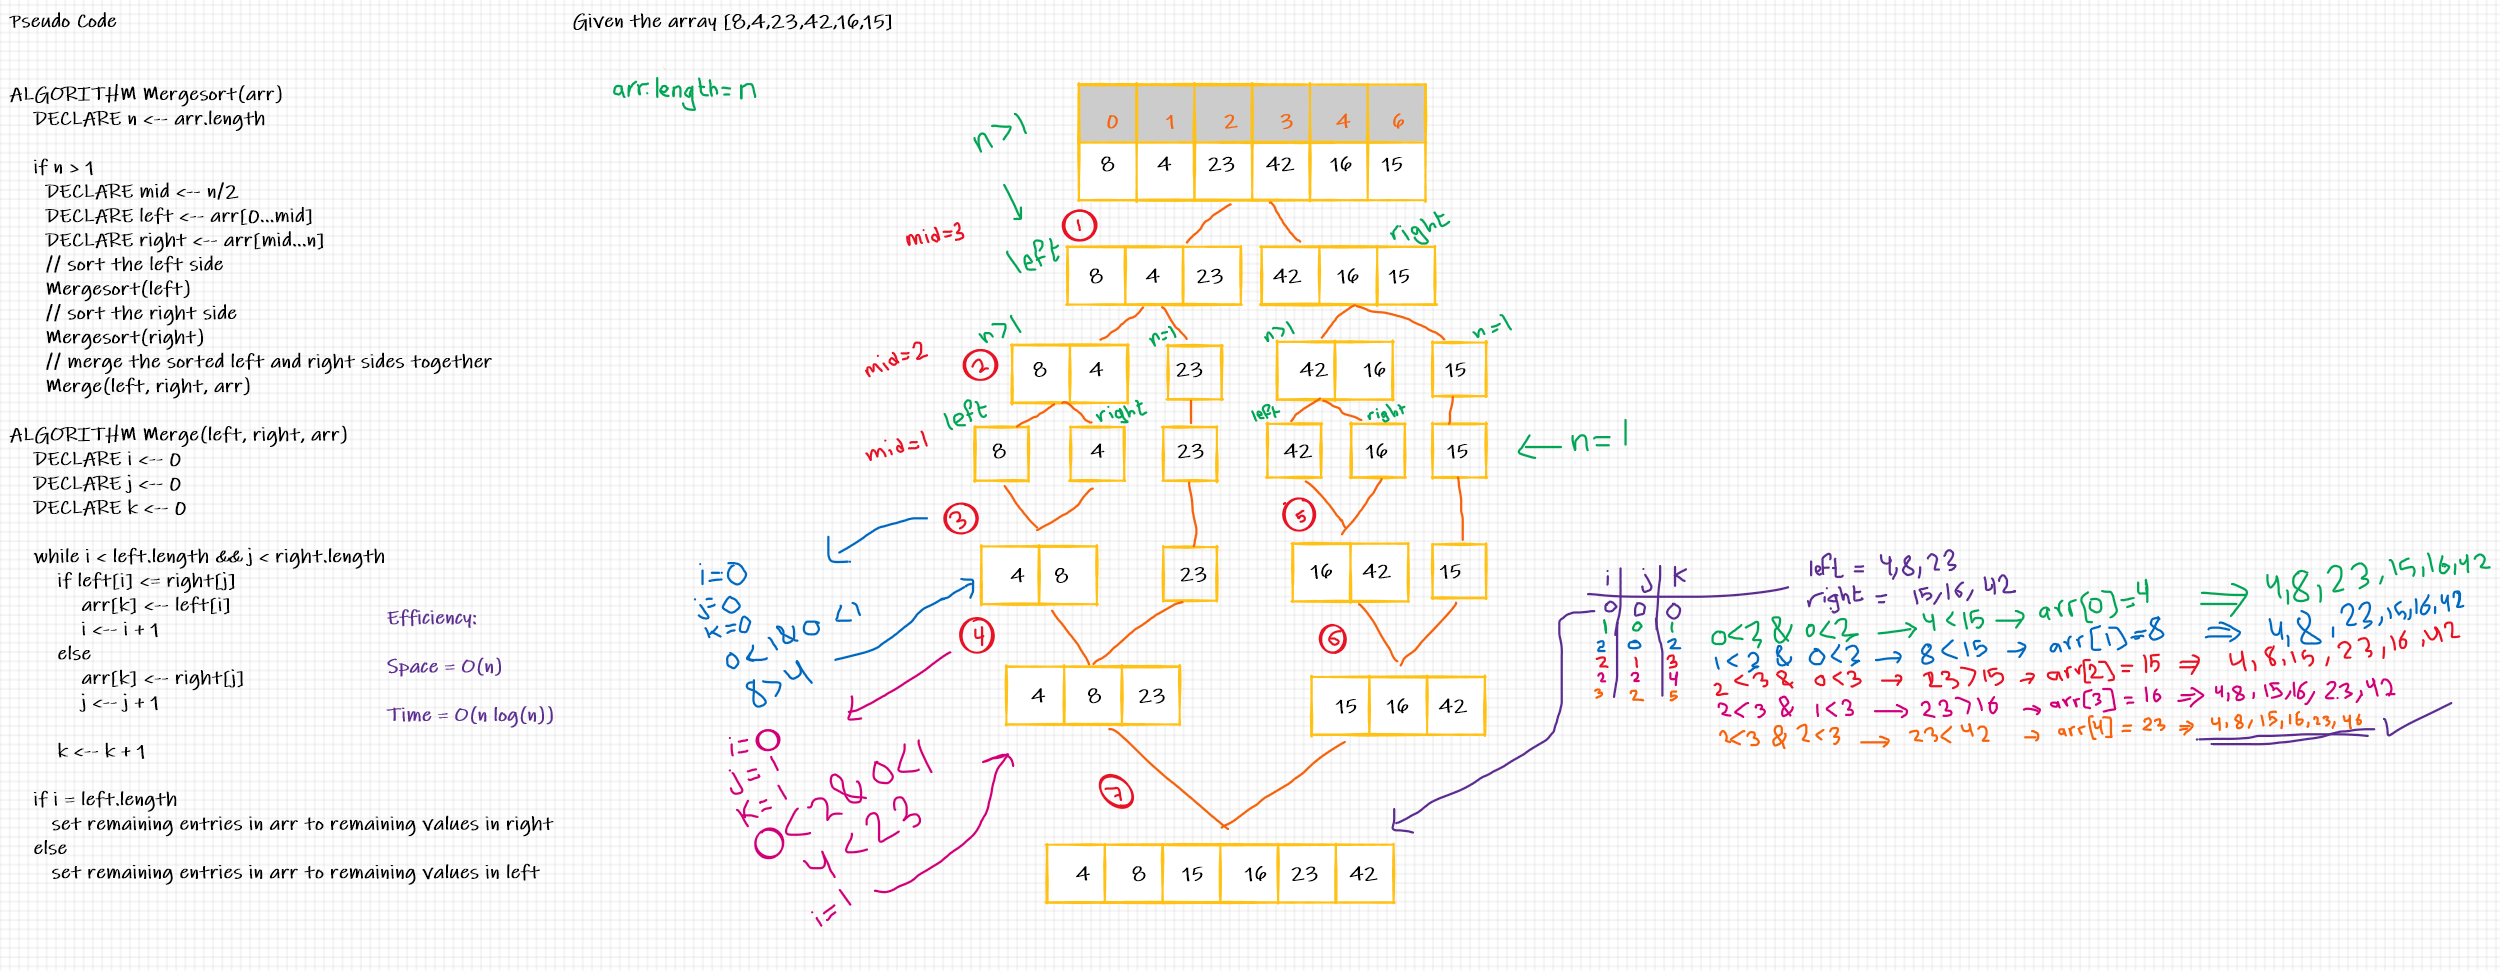 Pseudo Code
Given the array [8,4,23,42,16,15]
ALGORITHM Mergesort(arr)
DECLARE n <-- arr.length
if n > 1
DECLARE mid <-- n/2
DECLARE left <-- arr[0...mid]
DECLARE right <-- arr[mid...n]
// sort the left side
Mergesort(left)
// sort the right side
Mergesort(right)
// merge the sorted left and right sides together
Merge(left, right, arr)
ALGORITHM Merge(left, right, arr)
DECLARE i <-- 0
DECLARE j <-- 0
DECLARE k <-- 0
while i < left.length && j < right.length
if left[i] <= right[j]
arr[k] <-- left[i]
i <-- i + 1
else
arr[k] <-- right[j]
j <-- j + 1
k <-- k + 1
if i = left.length
set remaining entries in arr to remaining values in right
else
set remaining entries in arr to remaining values in left
Efficiency:
Space = O(n)
Time = O(n log(n))
arr.length=n
n>1
0 1 2 3 4 6
8 4 23 42 16 15
mid=3
1
left
right
8 4 23
42 16 15
n>1
n=1
n>1
n=1
mid=2
2
8 4
23
42 16
15
left
right
left
right
mid=1
8
4
23
42
16
15
n=1
3
5
4 8
23
16 42
15
i=0
j=0
k=0
0<1&0<1
8>4
4
6
4 8 23
15 16 42
i=0
j=1
k=1
0<2&0<1
4<23
i=1
7
4 8 15 16 23 42
i j k
0 0 0
1 0 1
2 0 2
2 1 3
2 2 4
3 2 5
left = 4,8,23
right = 15,16,42
0<3 & 0<3 → 4<15 → arr[0]=4 ⇒ 4,8,23,15,16,42
1<3 & 0<3 → 8<15 → arr[1]=8 ⇒ 4,8,23,15,16,42
2<3 & 0<3 → 23>15 → arr[2]=15 ⇒ 4,8,15,23,16,42
2<3 & 1<3 → 23>16 → arr[3]=16 ⇒ 4,8,15,16,23,42
2<3 & 2<3 → 23<42 → arr[4]=23 ⇒ 4,8,15,16,23,46